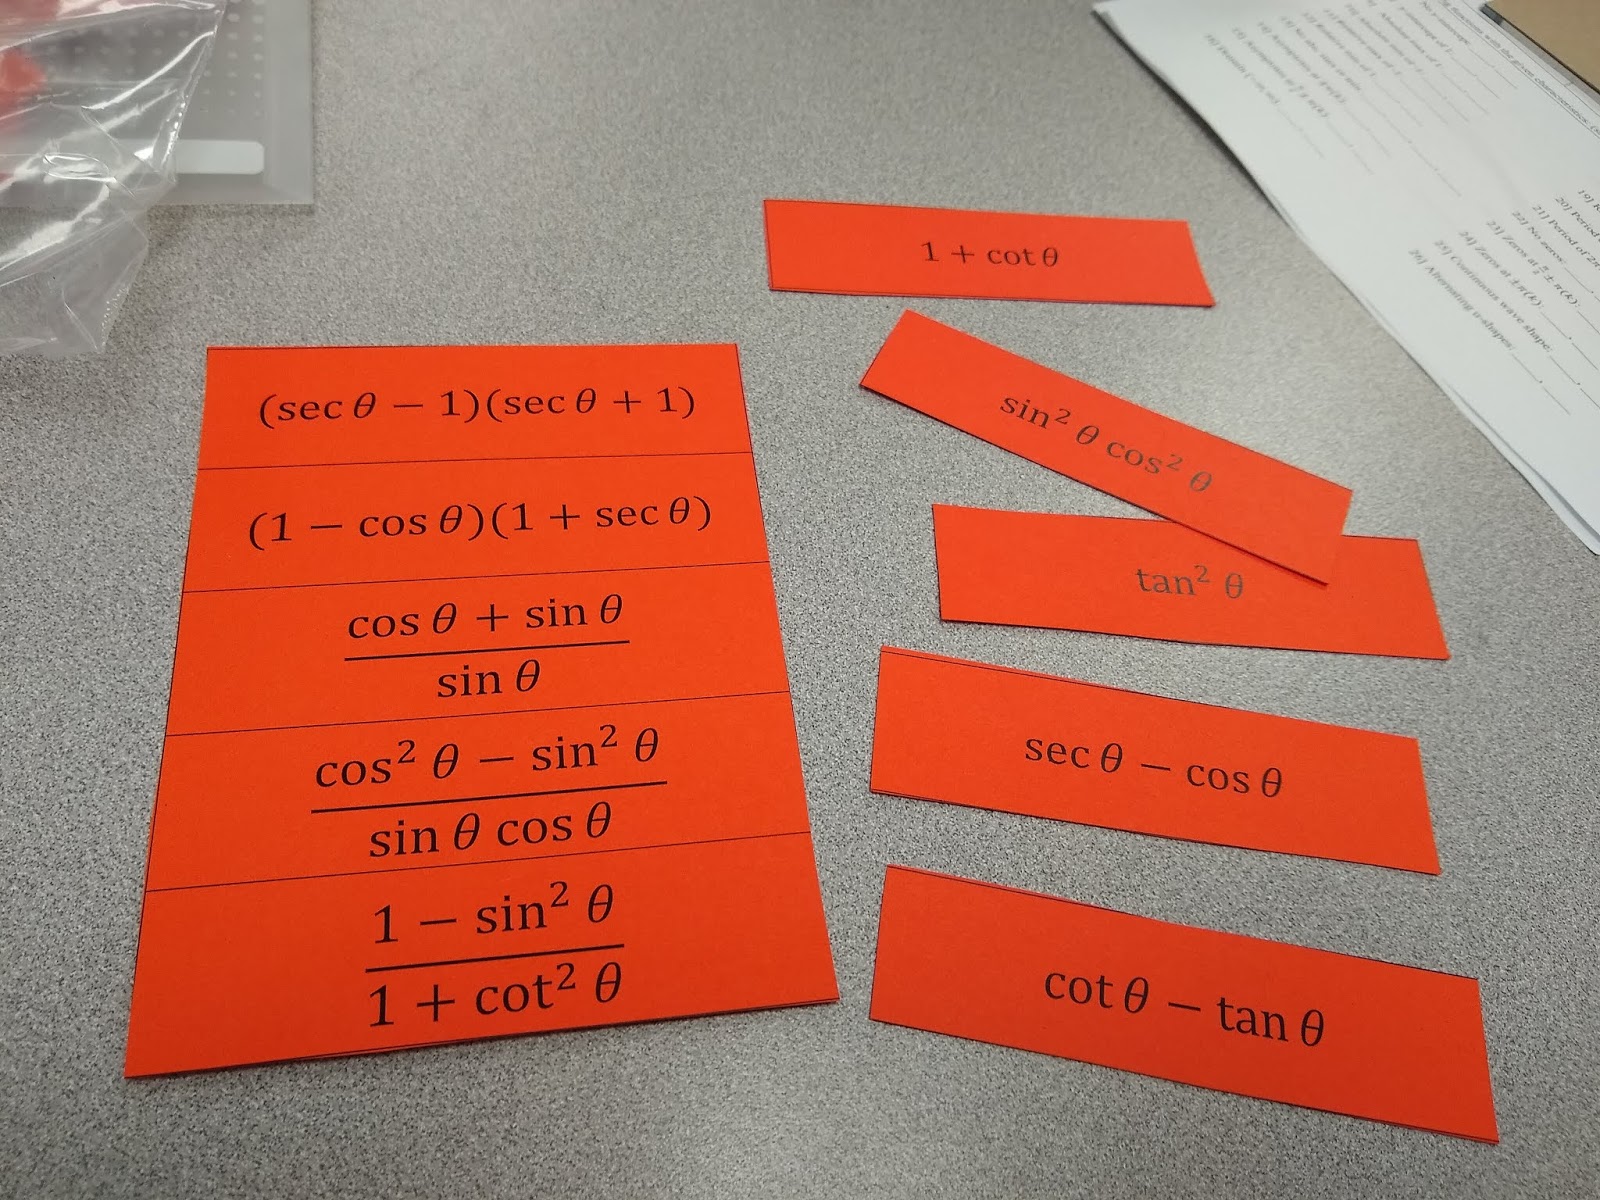 (sec θ − 1)(sec θ + 1)
(1 − cos θ)(1 + sec θ)
cos θ + sin θ
sin θ
cos² θ − sin² θ
sin θ cos θ
1 − sin² θ
1 + cot² θ
1 + cot θ
sin² θ cos² θ
tan² θ
sec θ − cos θ
cot θ − tan θ
functions with the given characteristics.
19]
20] Period
21] Period of 2π
22] No zeros:
23] Zeros at π/2 ± π(k):
24] Zeros at ±π(k):
25] Continuous wave shape:
26] Alternating u-shapes: